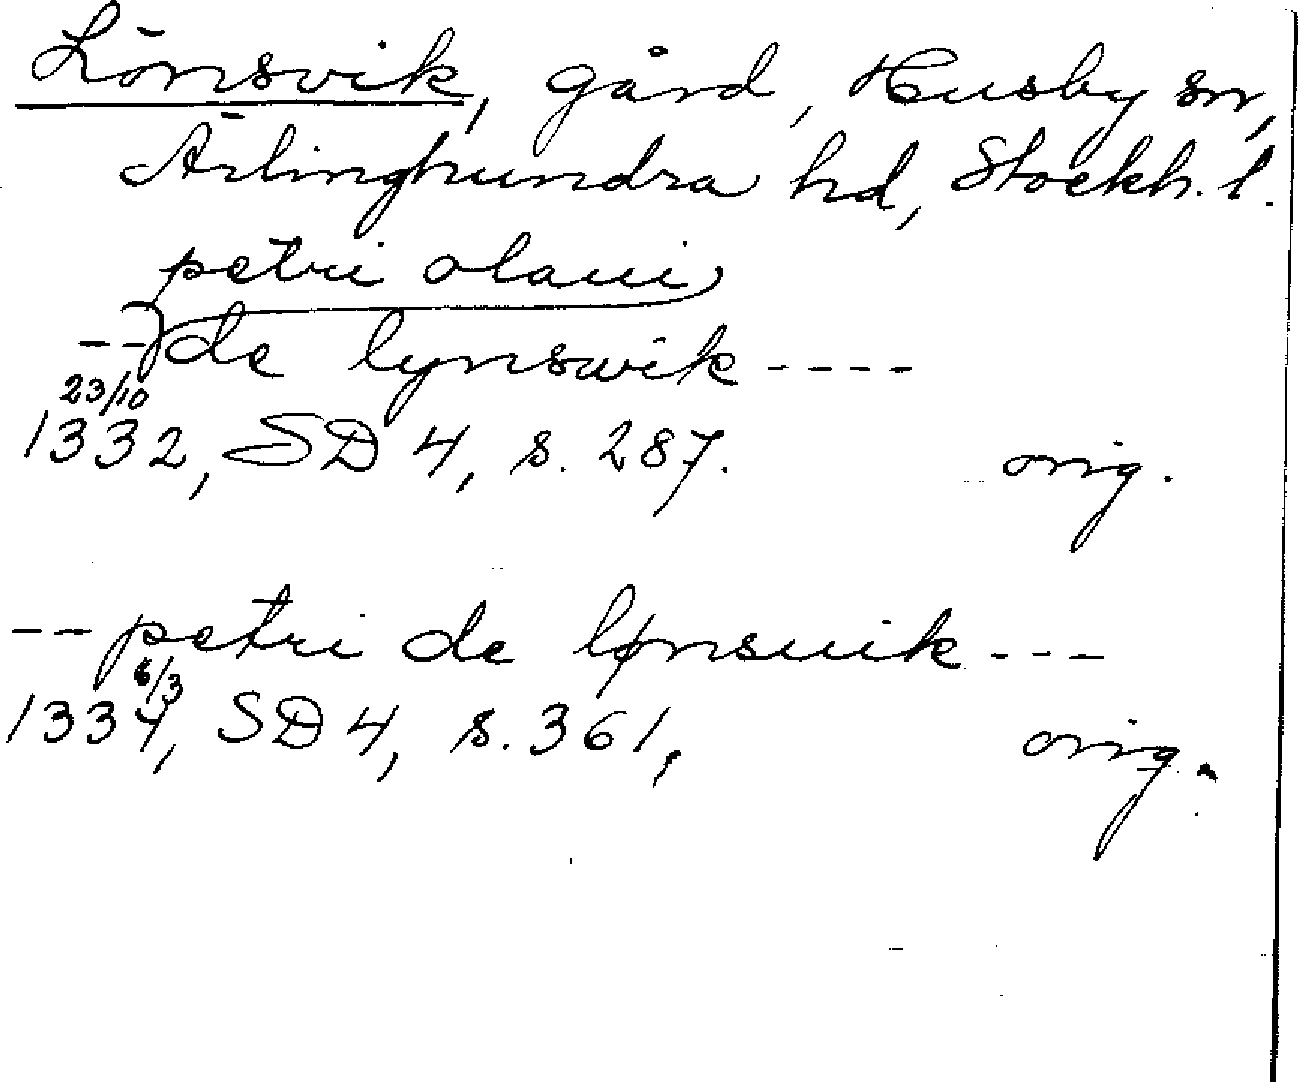 Lönsvik, gård, Husby sn,
Ärlinghundra hd, Stockh. l.
petri olaui
--de lynswik----
23/10
1332, SD 4, s. 287. orig.
--petri de lønsuik---
6/3
1334, SD 4, s. 361, orig.